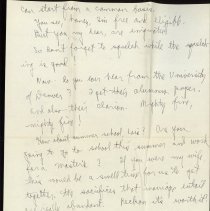 Can start from a common basis.
You see, honey, I'm free and eligible.
But you, my dear, are imprisoned
So don't forget to squelch while the squelch
ing is good
Now do you ever hear from the University
of Denver? I get their alumna paper.
And also their clarion. Mighty fine,
mighty fine!
How about summer school here? Are you
going to go to school this summer and work
for a master's? If you were my wife
this would be a swell time for us to get
together. The sacrifices that marriage entail
are really abundant. Reckon it's worth it?